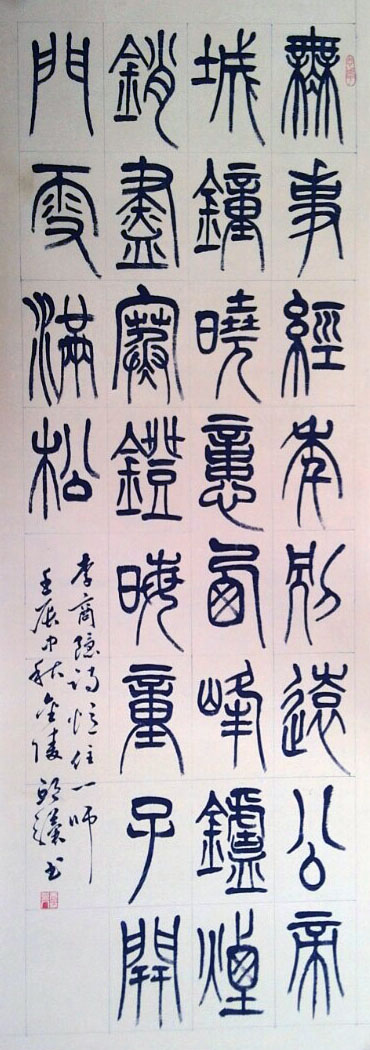 無事經年別遠公帝
城鐘曉憶西峰鑪煙
銷盡寒鐙晦童子開
門雪滿松
李商隱詩憶住一师
壬辰中秋金陵書